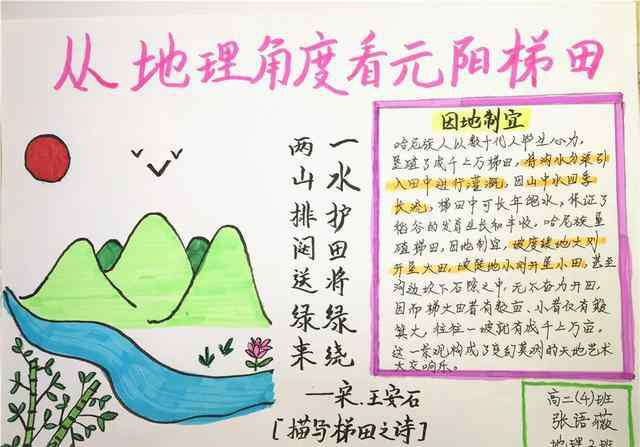 从地理角度看元阳梯田
一水护田将绿绕
两山排闼送绿来
——宋.王安石
[描写梯田之诗]
因地制宜
哈尼族人以数十代人毕生心力,
垦殖了成千上万梯田,将沟水分渠引
入田中进行灌溉,因山中水四季
长流,梯田中可长年饱水,保证了
稻谷的发育生长和丰收。哈尼族垦
殖梯田,因地制宜,坡度缓地大则
开垦大田,坡陡地小则开垦小田,甚至
沟边坎下石隙之中,无不奋力开田,
因而梯田大者有数亩,小者仅有簸
箕大,往往一坡就有成千上万亩。
这一景观构成了变幻莫测的天地艺术
大交响乐。
高二(4)班
张语薇